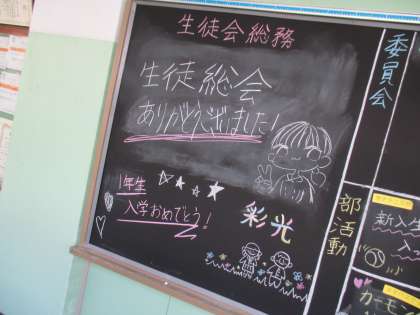 生徒会総務
生徒総会
ありがとうございました!
1年生
入学おめでとう!
彩光
委員会
部活動
新入生
入
カーモン